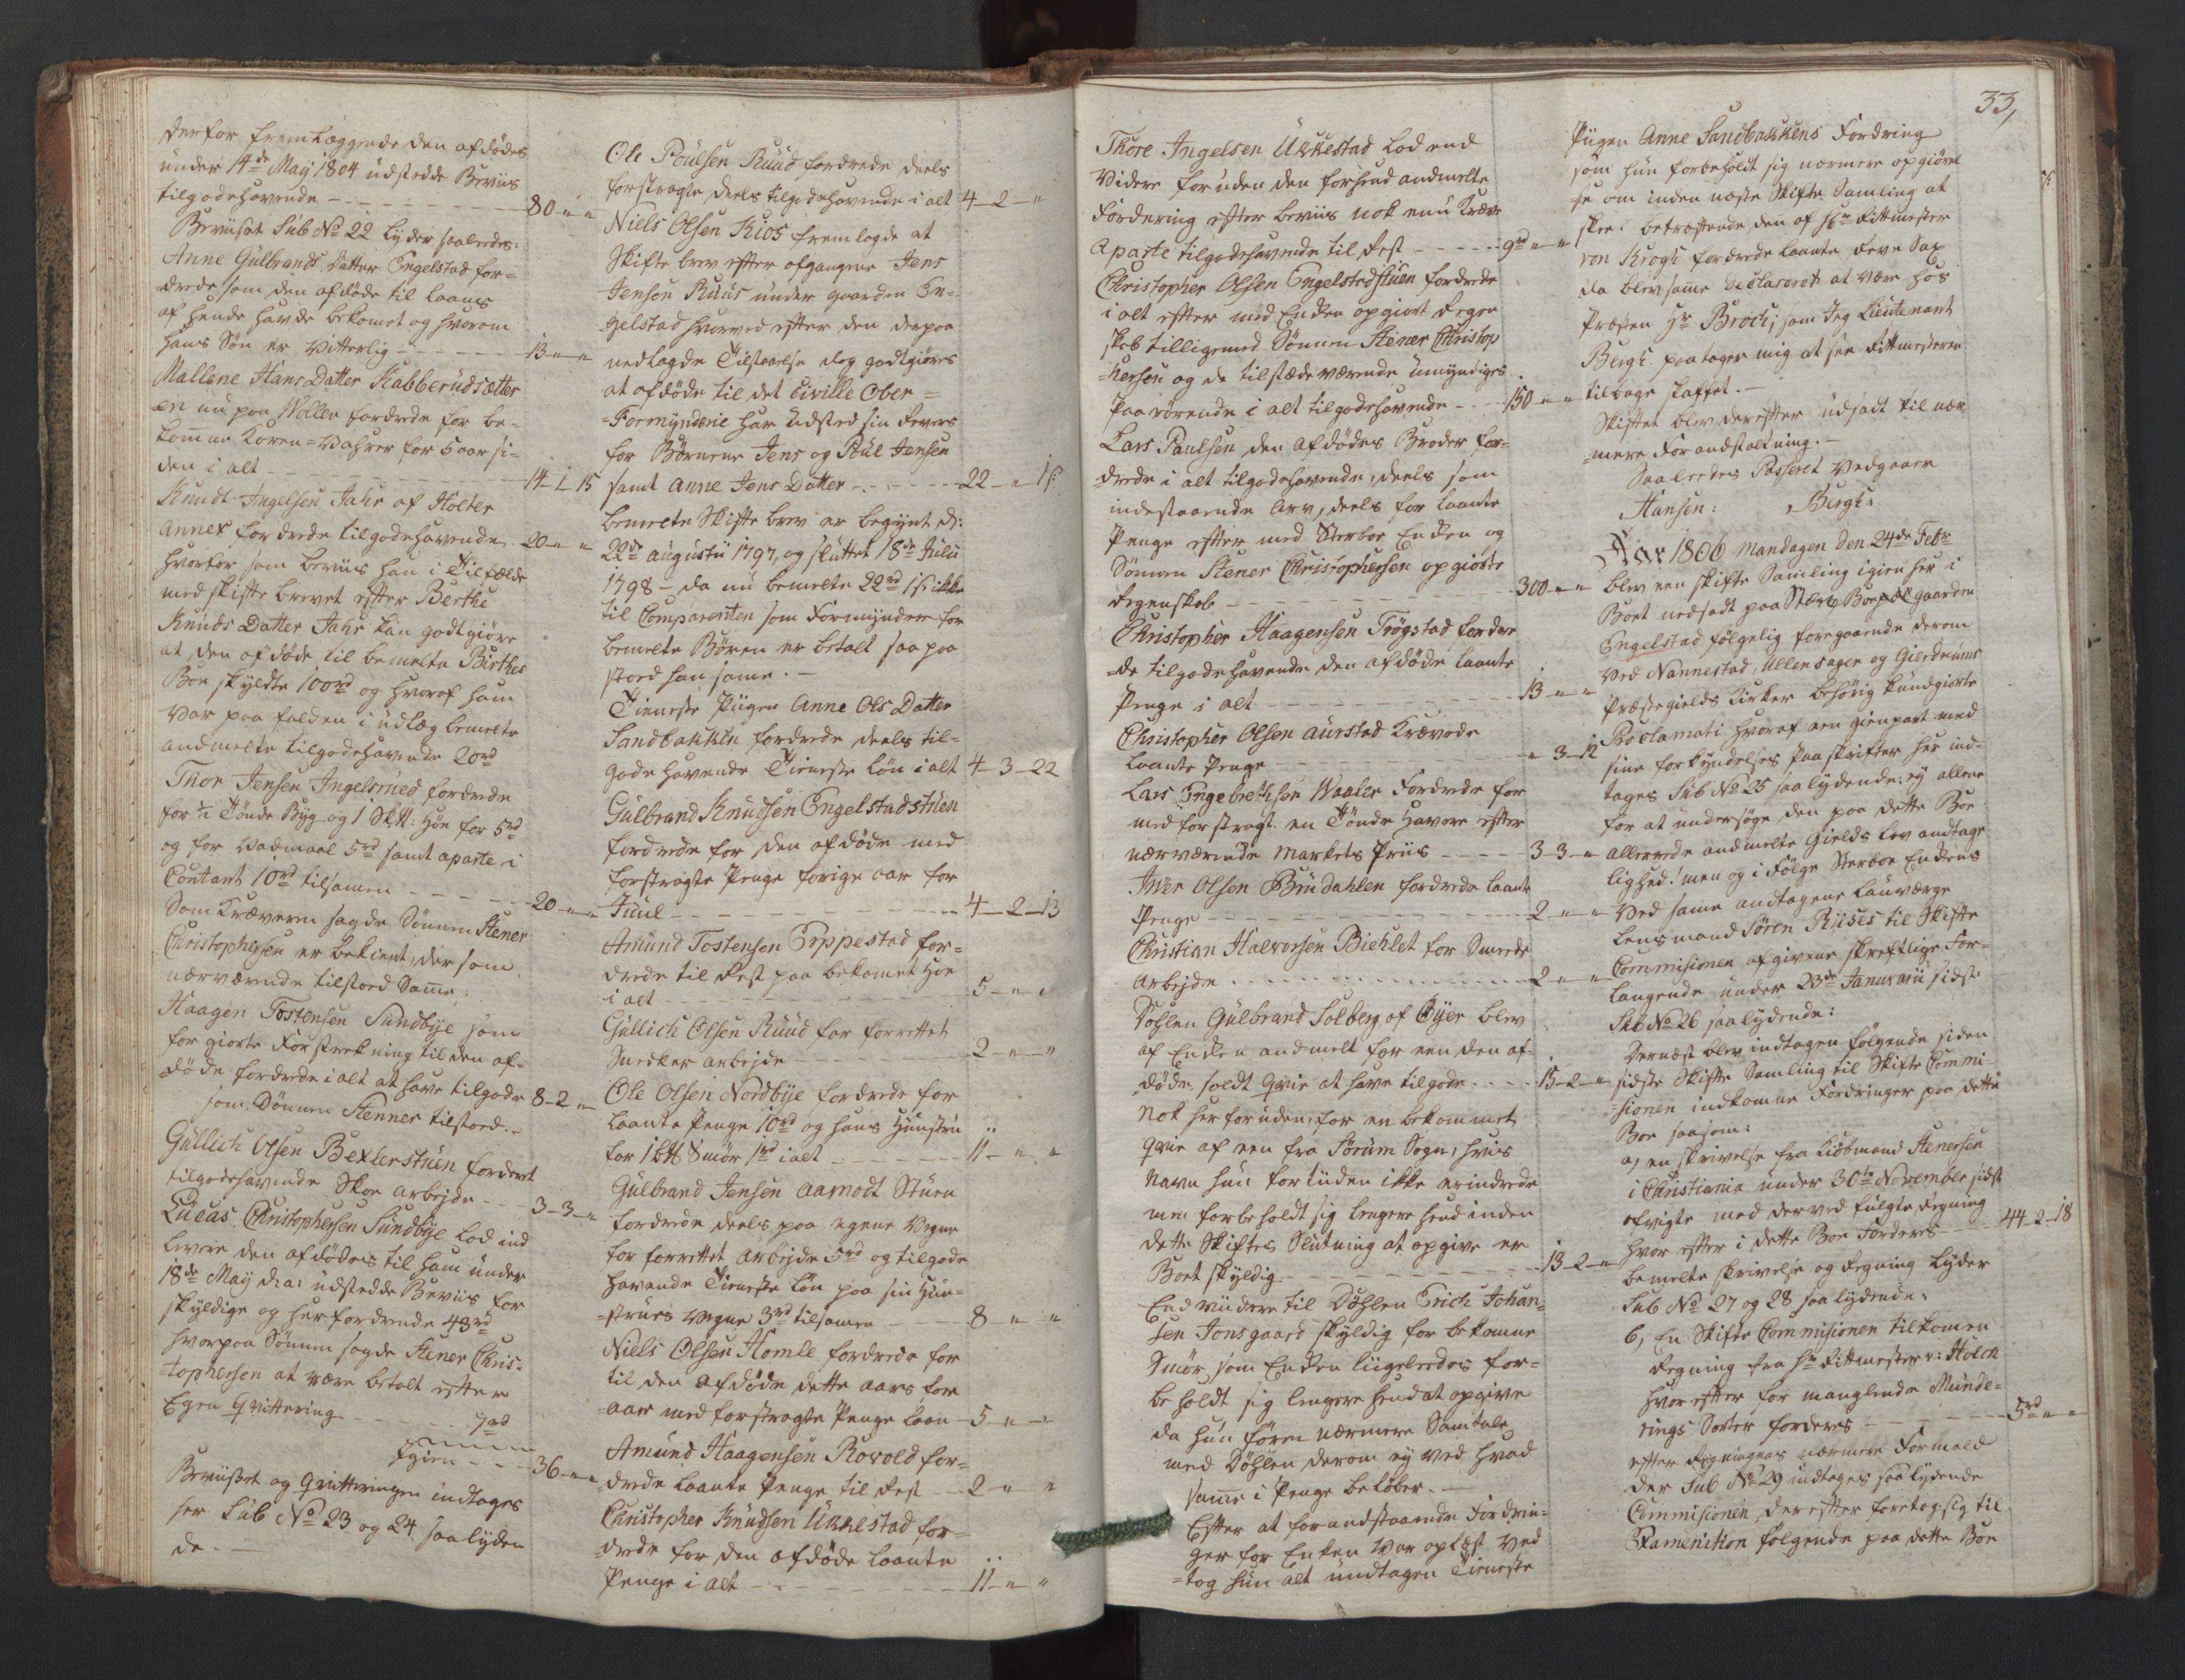 derfor fremlæggende den afdødes
under 14de May 1804 udstedde Beviis
tilgodehavende - - - - 80 - " "
Beviiset Sub No 22 lyder saaledes:
Anne Gulbrands Datter Engelstad for=
drede som den afdøde til Laans
af hende havde bekomet og hvorom
hans Søn er vitterlig - - - 13 - " "
Mallene Hans Datter Kabberudsætter
en nu paa Wollen fordrede for be-
komne Koren=Vahrer for 5 aar si=
den i alt - - - - 14 - 1 - 15
Knudt Ingelsen Jahr af Holter
Annex fordrede tilgodehavende 20 - " "
hvorfor som beviis han i Tilfælde
med skifte brevet efter Berthe
Knuds Datter Jahr kan godtgiøre
at den afdøde til bemelte Birthes
Boe skyldte 100rd og hvoraf ham
var paa falden i udlæg bemelte
andmelte tilgodehavende 20rd
Thor Jensen Ingelsrued fordrede
for 1/2 Tönde Byg og 1 Sk℔: Høe for 5rd
og for Vadmaal 5rd samt aparte i
Contant 10rd tilsamen - - - 20 - " "
Som Kræveren sagde Sønnen Stener
Christophersen er bekient, der som
nærværende tilstoed Same.
Haagen Tostensen Sundbye som
for giorte Forstrekning til den af=
døde fordrede i alt at have tilgode 8 - 2 - "
som Sønnen Stenner tilstoed. -
Gullich Olsen Bexlerstuen fordret
tilgodehavende Skoe arbejde - - 3 - 3 - "
Lucas Christophersen Sundbye lod ind
levere den afdødes til ham under
18de May d: a: udstedde Beviis for
skyldige og her fordrende 43rd
hvorpaa Sønnen sagde Stener Chris=
tophersen at være betalt efter
Egen Qvittering - - - 7rd
Igien - - - 36 - " "
Beviiset og Qvitteringen indtages
her Sub No 23 og 24 saa lyden
de. -
Ole Poulsen Ruud fordrede deels
forstragte deels tilgodehavende i alt 4 - 2 - "
Niels Olsen Kios fremlagde at
Skifte brev efter afgangne Jens
Jensen Ruus under gaarden En=
gelstad hvorved efter den derpaa
nedlagde Tilstaaelse dog godtgiøres
at afdøde til det Civille Ober=
=Formynderie har udsted sin Revers
for Børnene Jens og Poul Jensen
samt Anne Jens Datter - - - 22 - " 1ß
bemelte Skifte brev er begynt d:
22de Augustii 1797, og sluttet 18de Julii
1798 - da nu bemelte 22rd 1ß ikke
til Comparenten som Formynder for
bemelte Børen er betalt saa paa
stoed han same. -
Tieneste Piigen Anne Ols Datter
Sandbakken fordrede deels til=
gode havende Tieneste Løn i alt 4 - 3 - 22
Gulbrand Knudsen Engelstadstuen
fordrede for den afdøde med
forstragte Penge forige aar for
Juul - - - - 4 - 2 - 13
Amund Tostensen Eppestad for=
drede til Rest paa bekomet Hoe
i alt - - - - 5 - " "
Gullich Olsen Ruud for forrettet
Snedker arbejde - - - 2 - " - "
Ole Olsen Nordbye fordrede for
laante Penge 10rd og hans Huustru
for 1 b℔ Smør 1rd i alt - - - 11 - " "
Gulbrand Jensen Aamodt Stuen
fordrede deels paa egene Vegne
for forrettet arbejde 5rd og tilgode
havende Tieneste Løn paa sin Huu=
=strues Vegne 3rd tilsamen - - - 8 - " "
Niels Olsen Homle fordrede for
til den afdøde dette aars for
aar med forstragte Penge Laan - 5 - " "
Amund Haagensen Rovold for=
drede laante Penge til Rest - - 2 - " "
Christopher Knudsen Ukkestad for=
drede for den afdøde laante
Penge i alt - - - - 11 - " "
33,
Thore Ingelsen Ukkestad lod end
Videre foruden den forhend andmelte
Fordering efter beviis nok enu Kræve
aparte tilgodehavende til Rest - - - 9rd " "
Christopher Olsen Engelstedstuen fordrede
i alt efter med Enken opgiort Regen
skab tilligemed Sønnen Stener Christop
=hersen og de tilstædeværende umyndiges
Paa rörende i alt tilgodehavende - - - 150 - " "
Lars Paulsen den afdødes Broder for=
drede i alt tilgodehavende, deels som
indestaaende Arv, deels for laante
Penge efter med Sterboe Enken og
Sønnen Stener Christophersen opgiorte
Regenskab - - - 300 - " "
Christopher Haagensen Trögstad fordre
de tilgodehavende den afdøde laante
Penge i alt - - - 13 - " "
Christopher Olsen Aurstad Krævede
laante Penge - - - " 3 - 12
Lars Engebrethsen Waaler Fordrede for
med forstragt en Tönde Havere efter
nærværende Markets Priis - - - 3 - 3 - "
Iwer Olsen Brudahlen fordrede laante
Penge - - - 2 - " "
Christian Halvorsen Biehlet for Smede
Arbejde - - - 2 - " "
Döhlen Gulbrand Solberg af Öyer blev
af Enken andmelt for een den af=
döde soldt Qvie at have tilgode - - - 15 - 2 - "
Nok her foruden, for en bekommet
Qvie af een fra Sørum Sogn, hvis
Navn hun fortiiden ikke erindrede
men forbeholdt sig lengere hend inden
dette Skiftes Slutning at opgive er
Boet skyldig - - - 13 - 2 - "
End viidere til Döhlen Erich Johan=
sen Jonsgaard skyldig for bekomne
Smør, som Enken liigeledes for=
beholdt sig lengere hend at opgive
da hun fören nærmere Samtale
med Döhlen derom ej ved hvad
same i Penge beløber. -
Efter at forandstaaende Fordrin=
ger for Enken var oplæst ved
=tog hun alt undtagen Tieneste
Piigen Anne Sandbakkens Fordring
som hun forbeholdt sig nærmere opgiörel
se om inden næste Skifte Samling at
skee. betreffende den af Hr Rittmester
von Krogh fordrede laante
da blev same declareret at være hos
Præsten Hr Broch; som Jeg Lieutenant
Bergh paatager mig at see Rittmesteren
tilbage skaffet. -
Skiftet blev derefter udsadt til nær
=mere Forandstaltning. -
Saaledes Passeret Vedgaar
Hansen: Bergh:
Aar 1806 Mandagen den 24de Febr
blev een skifte Samling igien her i
Boet nedsadt paa Stærv Boe gaarden
Engelstad følgelig foregaaende derom
ved Nannestad, Ullensager og Gierdrums
Præstegields Kirker behörig kundgiorte
Proclamati hvoraf een gienpart med
sine forkyndelses Paaskrifter her ind=
tages Sub No 25 saalydende: ey allene
for at undersøge den paa dette Boe
allerede andmelte Gields lov andtage
lighed! men og i Følge Sterboe Enkens
ved same andtagne Lauværge
Lensmand Sören Riises til Skifte
Commisionen afgivne skreftlige For=
langende under 23de Januarii sidst
Sub No 26 saalydende:
Dernæst blev indtagen følgende siden
sidste Skifte Samling til Skifte Commi=
=sionen indkomne Fordringer paa dette
Boe saasom:
a, en skrivelse fra Kiöbmand Stenersen
i Christiania under 30te November sidst
afvigte med derved fulgte Regning
hvor efter i dette Boe Forderes - - 44 - 2 - 18
bemelte skrivelse og Regning lyder
Sub No 27 og 28 saa lydende:
b, En Skifte Commisionen tilkomen
Regning fra Hr Rittmester v: Holck
hvor efter for manglende Munde=
rings Sorter forderes - - - 5rd " "
efter Regningens nærmere Formeld
der Sub No 29 indtages saa lydende
Commisionen derefter foretog sig til
Examenition følgende paa dette Boe